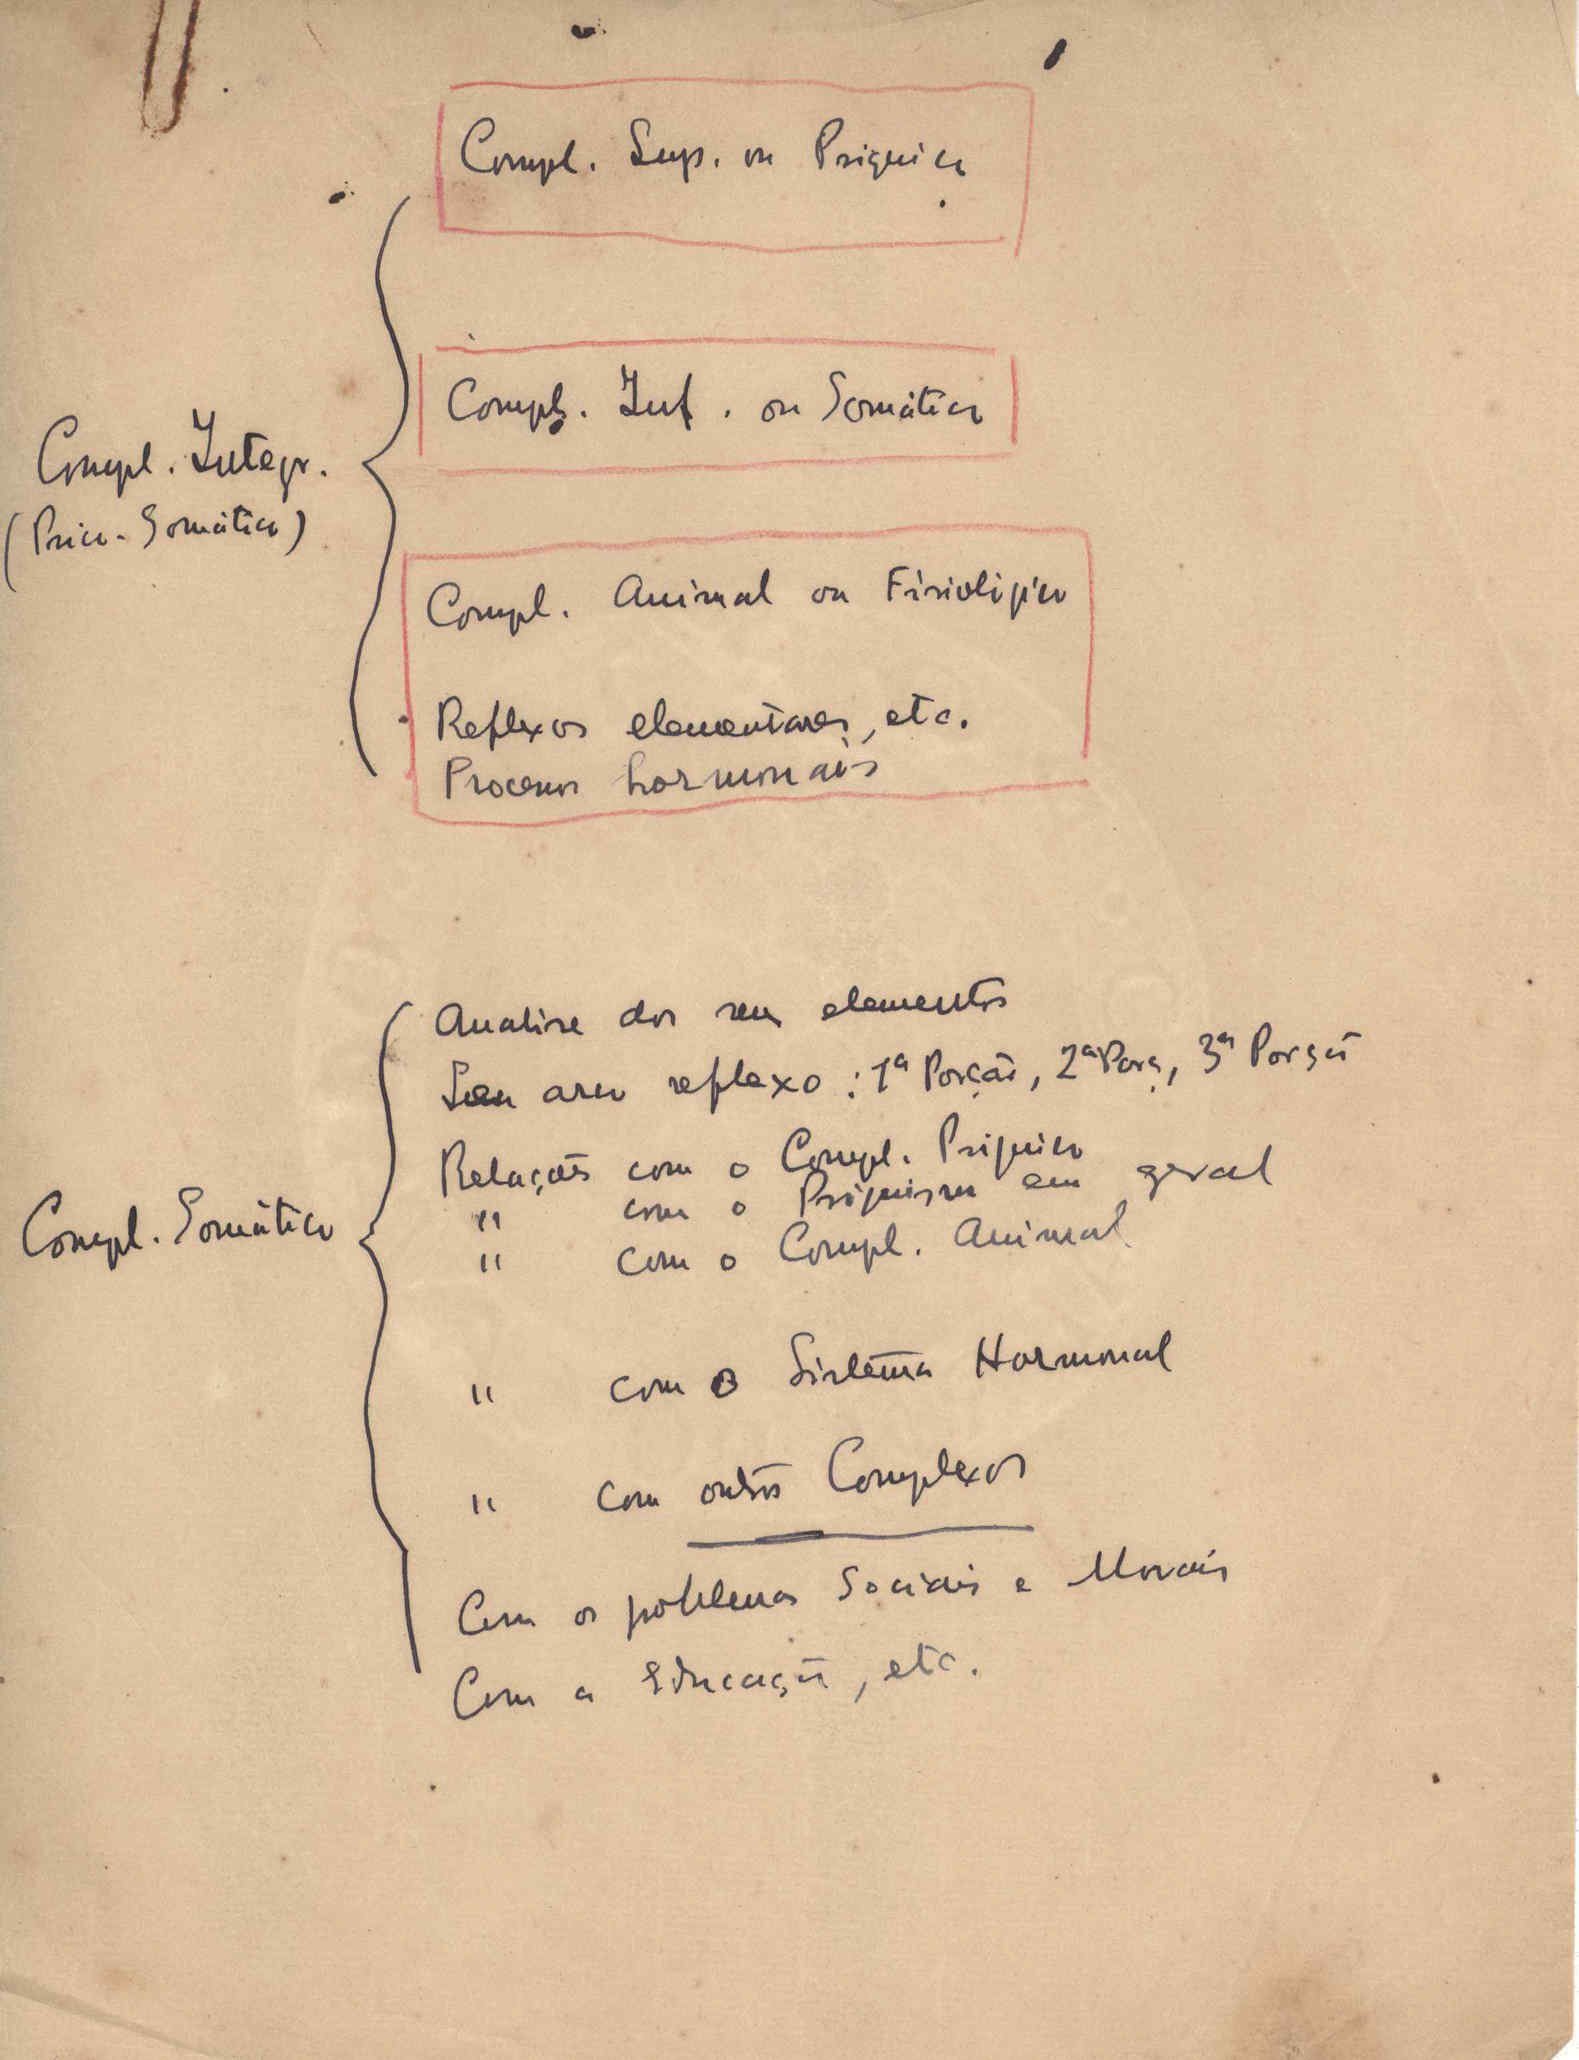 Compl. Sup. ou Psiquico
Compl. Inf. ou Somático
Compl. Integr.
(Psico-Somático)
Compl. Animal ou Fisiológico
Reflexos elementares, etc.
Processos hormonais
Analise dos seus elementos
Seu arco reflexo: 1ª Porção, 2ª Porç, 3ª Porção
Relações com o Compl. Psiquico
" com o Psiquismo em geral
Compl. Somático
" com o Compl. Animal
" com o Sistema Hormonal
" com outros Complexos
Com os problemas Sociais e Morais
Com a Educação, etc.